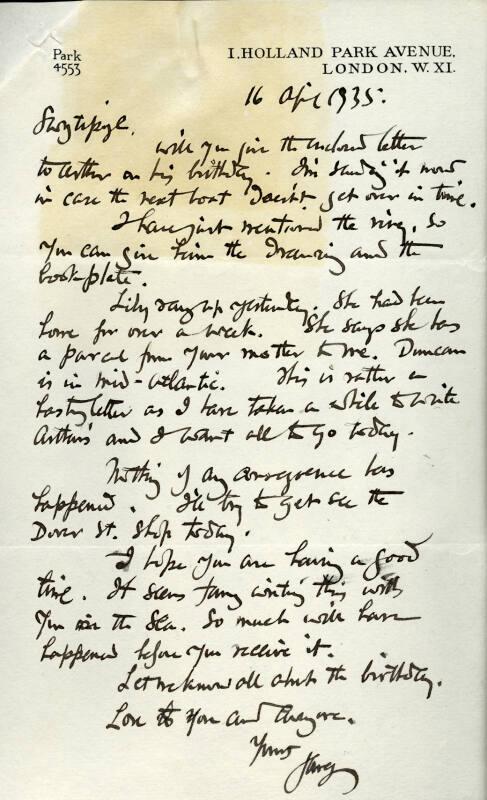 Park
4553
1. HOLLAND PARK AVENUE,
LONDON. W. XI.
16 Apl 1935.
will you give the enclosed letter
to Arthur on his birthday. I'm sending it now
in case the next boat doesn't get over in time.
I have just mentioned the ring, so
you can give him the drawing and the
book-plate.
Lily rang up yesterday. She had been
home for over a week. She says she has
a parcel from your mother to me. Duncan
is in mid-Atlantic. This is rather a
hasty letter as I have taken a while to write
Arthur's and I want all to go today.
Nothing of any consequence has
happened. I'll try to get see the
Dover St. shop today.
I hope you are having a good
time. It seems funny writing this with
you on the sea. So much will have
happened before you receive it.
Let me know all about the birthday.
Love to you and
Yours